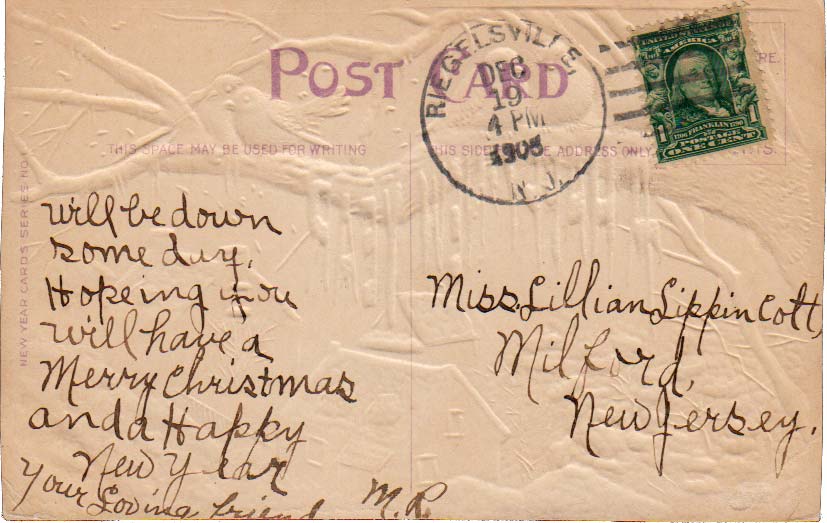 POST CARD
THIS SPACE MAY BE USED FOR WRITING
THIS SIDE ADDRESS ONLY
NEW YEAR CARDS SERIES NO
RIEGELSVILLE
DEC
19
4 PM
N.J.
UNITED STATES
AMERICA
1 1
FRANKLIN
POSTAGE
ONE CENT
will be down
some day.
Hopeing you
will have a
Merry Christmas
and a Happy
New Year
Your Loving friend M.R.
Miss. Lillian Lippincott,
Milford,
New Jersey.